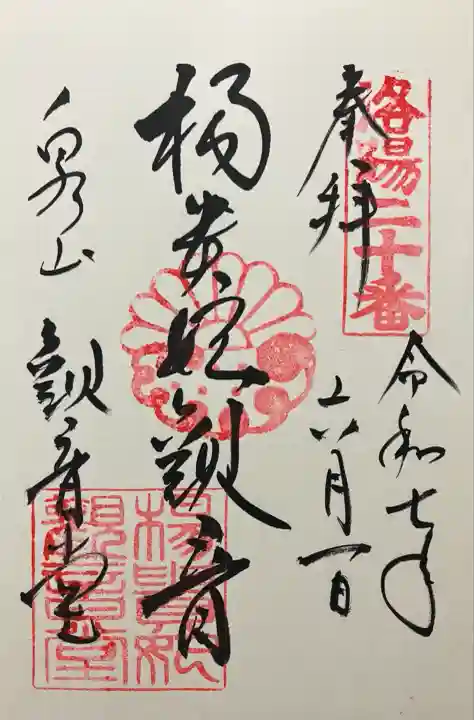 洛陽二十番
奉拝
令和七年
六月一日
楊貴妃観音
泉山 観音堂
楊貴妃
觀音堂